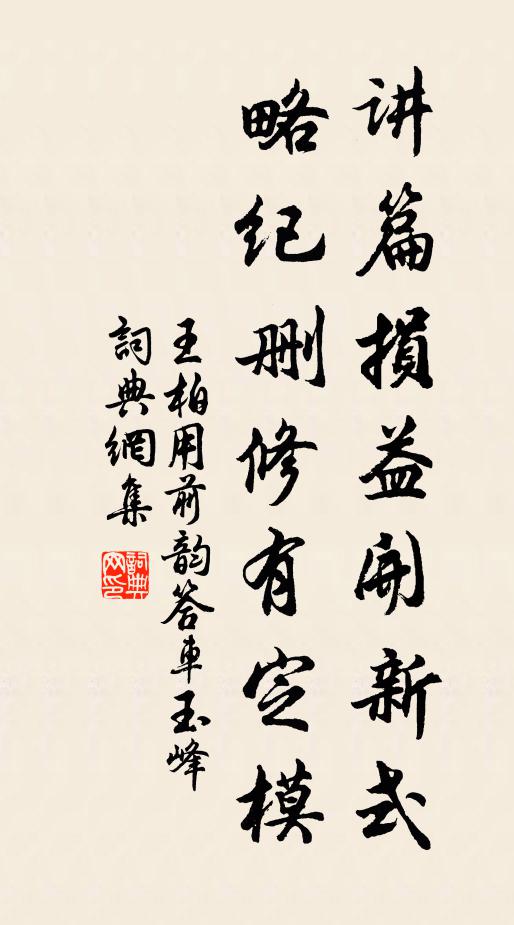 讲篇損益開新式
略纪删修有定模
王柏用前韵答車玉峰
詞典網集
詞典網印